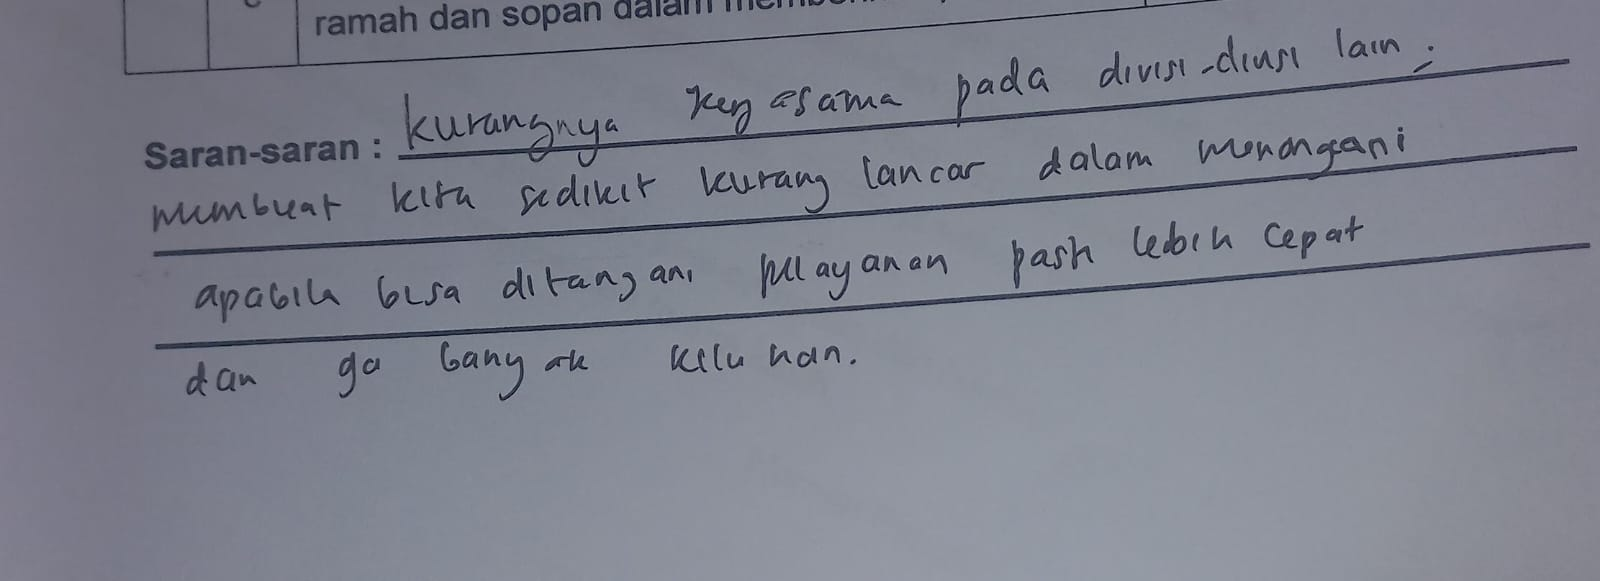 ramah dan sopan dalam
Saran-saran : kurangnya kerjasama pada divisi-divisi lain.
membuat kita sedikit kurang lancar dalam menangani
apabila bisa ditangani pelayanan pasti lebih cepat
dan ga banyak keluhan.